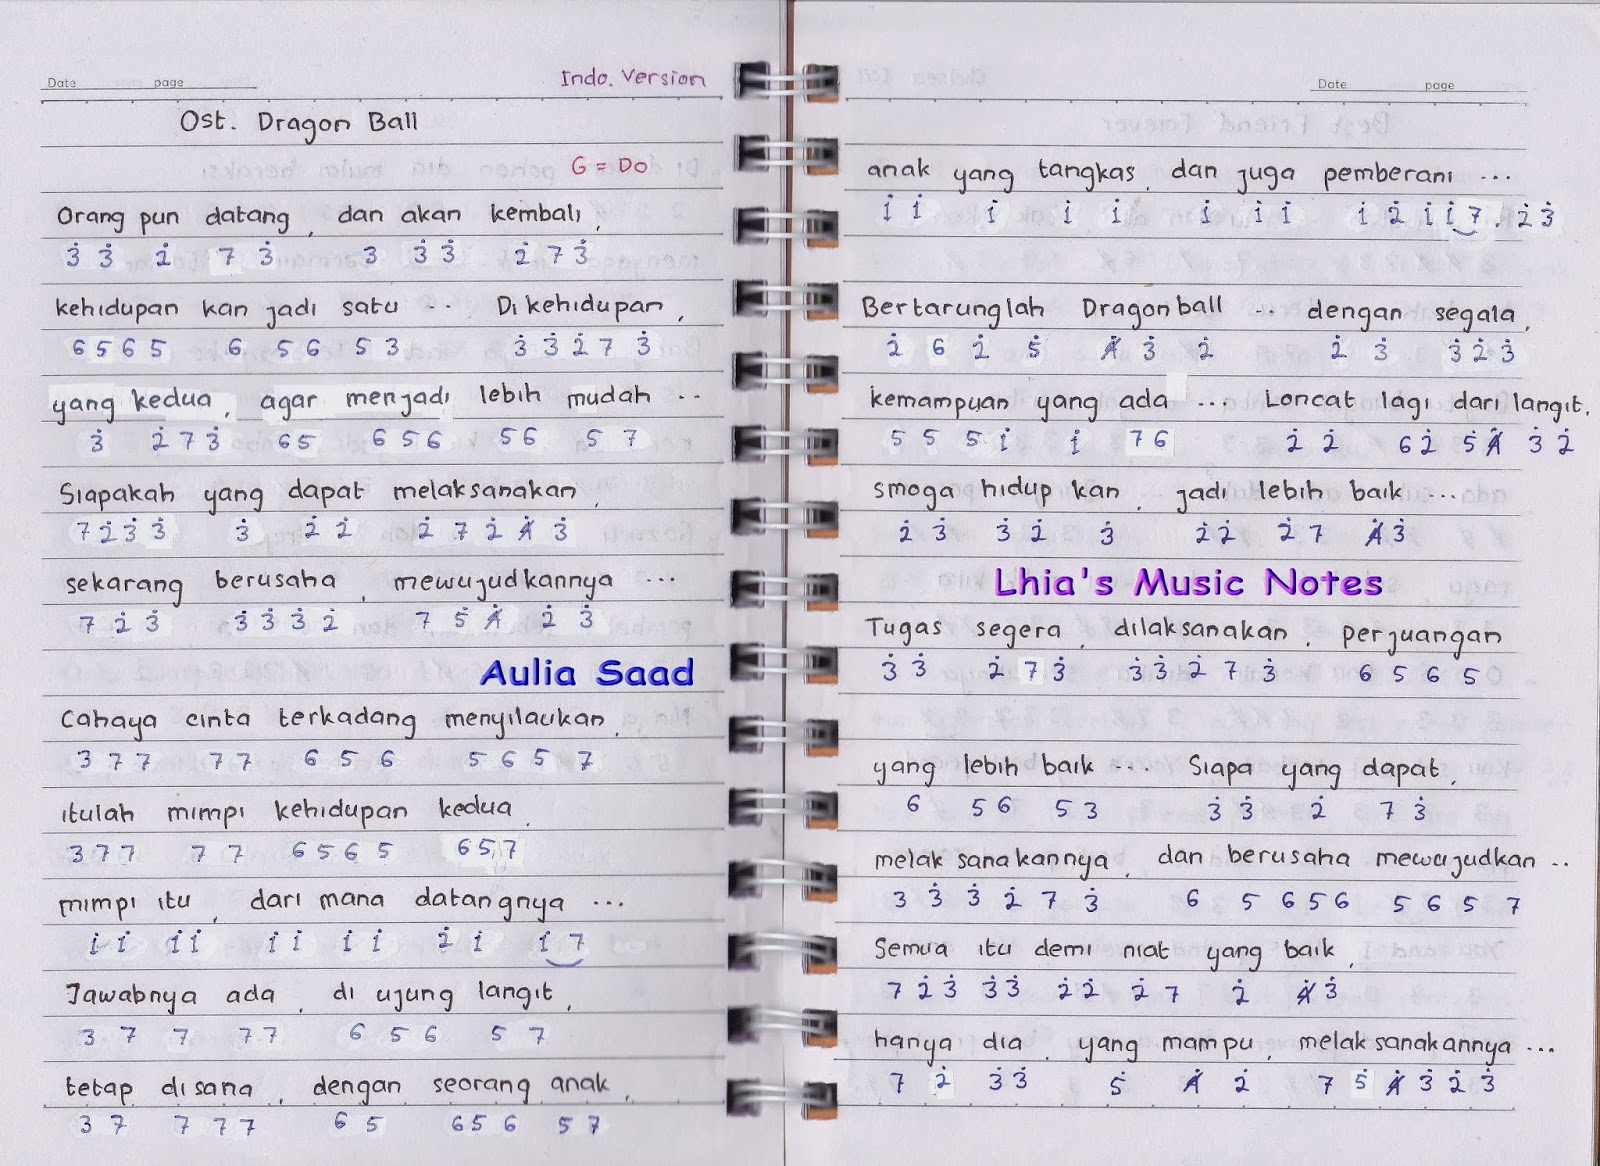 Date page
Indo. Version
Ost. Dragon Ball
G = Do
Orang pun datang, dan akan kembali,
3̇ 3̇ 2̇ 7 3̇ 3 3̇ 3̇ 2̇ 7 3̇
kehidupan kan jadi satu .. Di kehidupan,
6 5 6 5 6 5 6 5 3 3̇ 3̇ 2̇ 7 3̇
yang kedua, agar menjadi lebih mudah ..
3̇ 2̇ 7 3̇ 6 5 6 5 6 5 6 5 7
Siapakah yang dapat melaksanakan,
7 2̇ 3̇ 3̇ 3̇ 2̇ 2̇ 2̇ 7 2̇ 4̸̇ 3̇
sekarang berusaha, mewujudkannya ...
7 2̇ 3̇ 3̇ 3̇ 3̇ 2̇ 7 5̇ 4̸̇ 2̇ 3̇
Aulia Saad
Cahaya cinta terkadang menyilaukan,
3 7 7 7 7 6 5 6 5 6 5 7
itulah mimpi kehidupan kedua,
3 7 7 7 7 6 5 6 5 6 5 7
mimpi itu, dari mana datangnya ...
1̇ 1̇ 1̇ 1̇ 1̇ 1̇ 1̇ 1̇ 2̇ 1̇ 1̇ 7
Jawabnya ada, di ujung langit,
3 7 7 7 7 6 5 6 5 7
tetap disana, dengan seorang anak,
3 7 7 7 7 6 5 6 5 6 5 7
Date page
anak yang tangkas, dan juga pemberani ...
1̇ 1̇ 1̇ 1̇ 1̇ 1̇ 1̇ 1̇ 1̇ 2̇ 1̇ 1̇ 7 . 2̇ 3̇
Bertarunglah Dragonball .. dengan segala,
2̇ 6 2̇ 5̇ 4̸̇ 3̇ 2̇ 2̇ 3̇ 3̇ 2̇ 3̇
kemampuan yang ada ... Loncat lagi dari langit,
5 5 5 1̇ 1̇ 7 6 2̇ 2̇ 6 2̇ 5̇ 4̸̇ 3̇ 2̇
smoga hidup kan, jadi lebih baik ...
2̇ 3̇ 3̇ 2̇ 3̇ 2̇ 2̇ 2̇ 7 4̸̇ 3̇
Lhia's Music Notes
Tugas segera, dilaksanakan, perjuangan
3̇ 3̇ 2̇ 7 3̇ 3̇ 3̇ 2̇ 7 3̇ 6 5 6 5
yang lebih baik ... Siapa yang dapat,
6 5 6 5 3 3̇ 3̇ 2̇ 7 3̇
melaksanakannya, dan berusaha mewujudkan ..
3 3̇ 3̇ 2̇ 7 3̇ 6 5 6 5 6 5 6 5 7
Semua itu demi niat yang baik,
7 2̇ 3̇ 3̇ 3̇ 2̇ 2̇ 2̇ 7 2̇ 4̸̇ 3̇
hanya dia, yang mampu, melaksanakannya ...
7 2̇ 3̇ 3̇ 5̇ 4̸̇ 2̇ 7 5̇ 4̸̇ 3̇ 2̇ 3̇